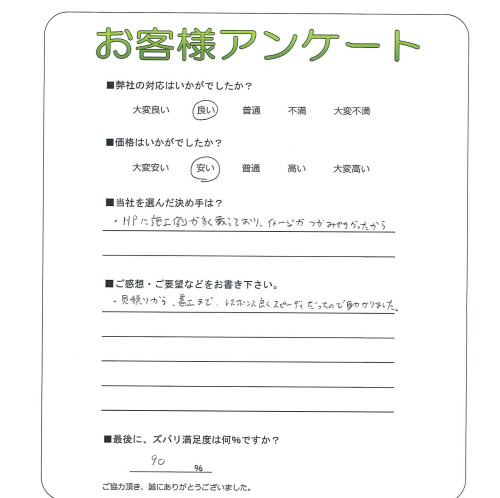 お客様アンケート
■弊社の対応はいかがでしたか？
大変良い 良い 普通 不満 大変不満
■価格はいかがでしたか？
大変安い 安い 普通 高い 大変高い
■当社を選んだ決め手は？
・HPに施工例が多く載っており、イメージがつかみやすかったから
■ご感想・ご要望などをお書き下さい。
・見積りから、着工まで、レスポンス良くスピーディだったので助かりました。
■最後に、ズバリ満足度は何％ですか？
90 ％
ご協力頂き、誠にありがとうございました。